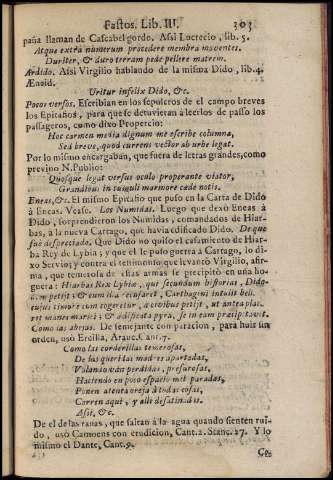 Fastos. Lib. III. 303
paña llaman de Cascabelgordo. Assi Lucrecio, lib. 5.
Atque extra numerum procedere membra moventes.
Duriter, & duro terram pede pellere matrem.
Ardido. Assi Virgilio hablando de la misma Dido, lib. 4.
Æneid.
Uritur infelix Dido, &c.
Pocos versos. Escribian en los sepulcros de el campo breves
los Epitafios, para que se detuvieran à leerlos de passo los
passageros, como dixo Propercio:
Hoc carmen media dignum me escribe columna,
Sed breve, quod currens vector ab urbe legat.
Por lo mismo encargaban, que fuera de letras grandes, como
previno N. Publio:
Quosque legat versus oculo properante viator,
Grandibus in tituli marmore cæde notis.
Eneas, &c. El mismo Epitafio que puso en la Carta de Dido
à Eneas. Vease. Los Numidas. Luego que dexò Eneas à
Dido, sorprendieron los Numidas, comandados de Hiar-
bas, à la nueva Cartago, que havia edificado Dido. De que
fue despreciado. Que Dido no quiso el casamiento de Hiar-
ba Rey de Lybia; y que el le puso guerra à Cartago, lo di-
xo Servio; y contra el testimonio que levantò Virgilio, afir-
ma, que temerosa de estas armas se precipitò en una ho-
guera: Hiarbas Rex Lybiæ, qui secundum historias, Dido-
nem petijt, & cum illa recusaret, Carthagini intulit bell
cuius timore cum cogeretur à civibus petijt, ut ante pla
ret manes mariti; & ædificata pyra, se in eam præcipitavit.
Como las abejas. De semejante comparacion, para huir sin
orden, usò Ercilla, Arauc. Cant. 7.
Como las corderillas temerosas,
De sus queridas madres apartadas,
Balando vàn perdidas, presurosas,
Haciendo en poco espacio mil paradas,
Ponen atenta oreja à todas cosas,
Corren aqui, y alli desatinadas.
Assi, &c.
De el de las ranas, que saltan à la agua quando sienten rui-
do, usò Camoens con erudicion, Cant. 2. Stanc. 27. Y lo
mismo el Dante, Cant. 9.